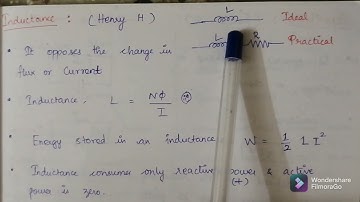 Inductance : (Henry H) L Ideal
L R Practical
• It opposes the change in
flux or Current
• Inductance, L = Nϕ / I
• Energy stored in an inductance W = 1/2 L I²
• Inductance consumes only reactive power & active
(+)
power is zero.
Wondershare
FilmoraGo